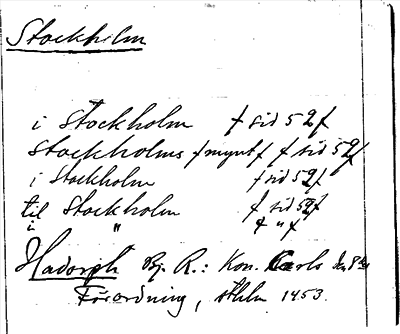 Stockholm
i Stockholm f sid 52 f
Stockholms f mynt f f sid 52 f
i Stockholm f sid 52 f
til Stockholm f sid 52 f
i " f " f
Hadorph Bj. R.: Kon. Carls den 8de
Förordning, Sthlm 1453.